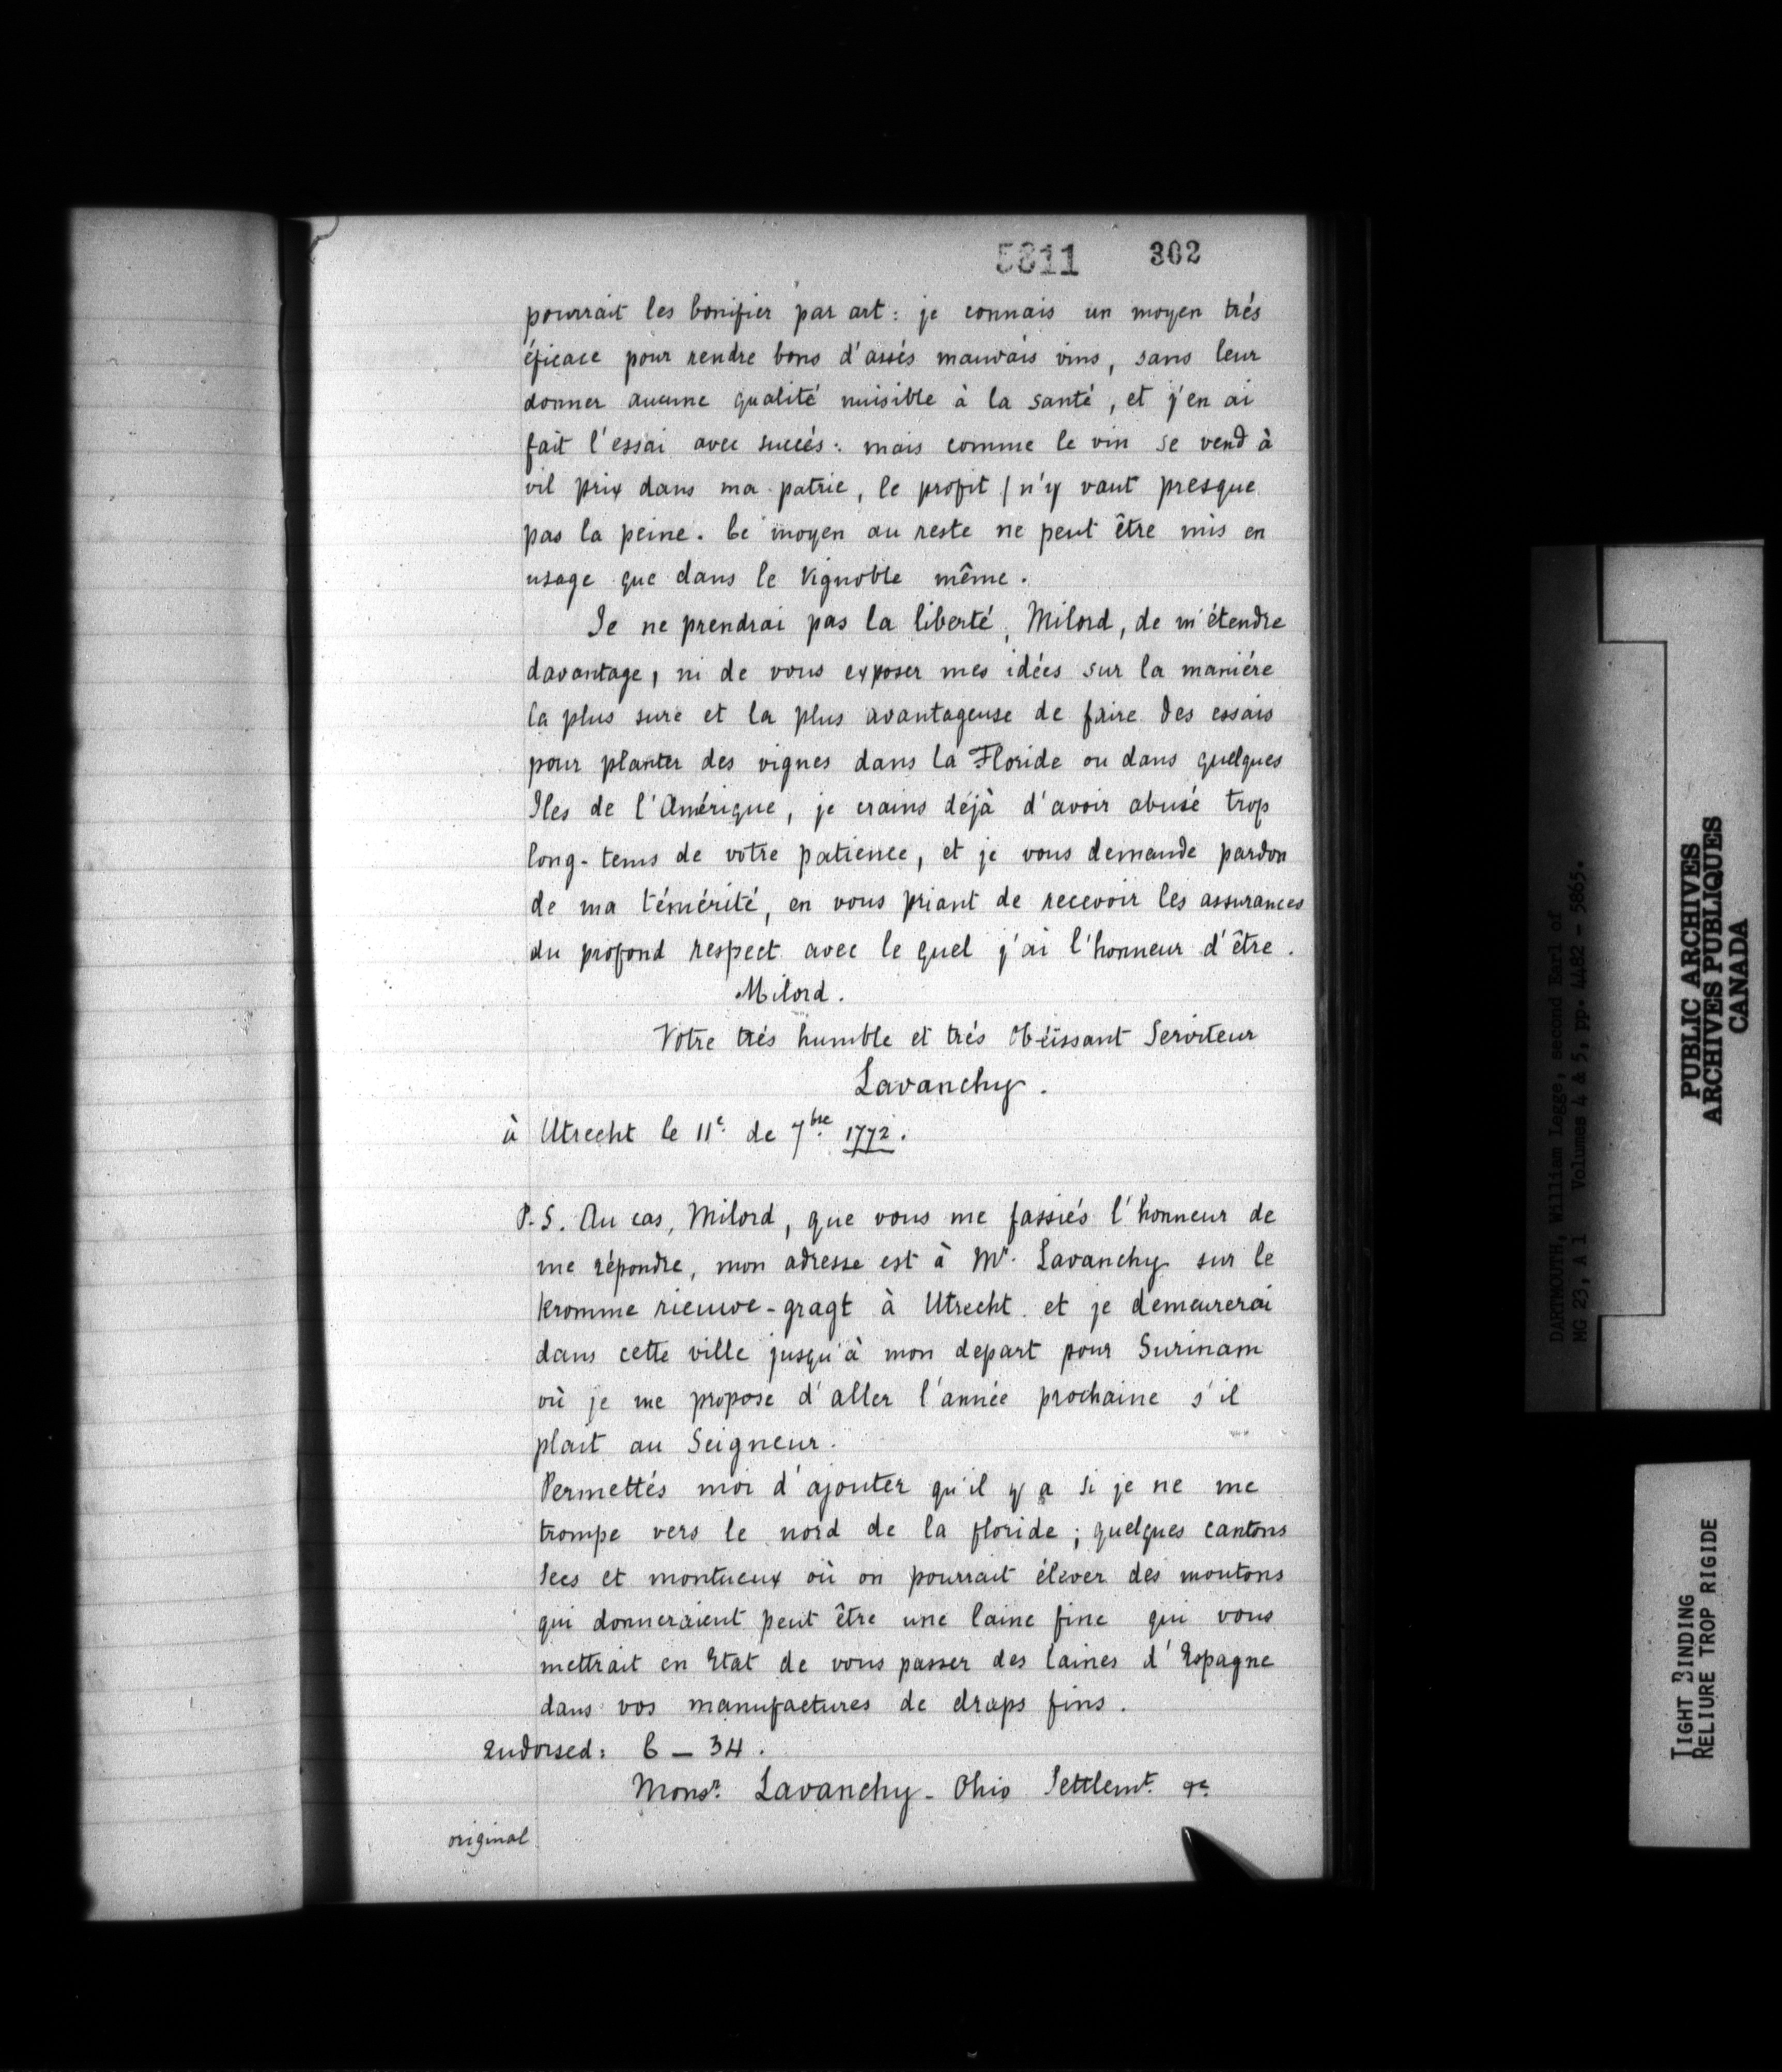 5811 302
pourrait les bonifier par art : je connais un moyen trés
éficace pour rendre bons d'assés mauvais vins, sans leur
donner aucune qualité nuisible à la santé, et j'en ai
fait l'essai avec succés : mais comme le vin se vend à
vil prix dans ma patrie, le profit n'y vaut presque
pas la peine. Ce moyen au reste ne peut être mis en
usage que dans le Vignoble même.
Je ne prendrai pas la liberté, Milord, de m'étendre
davantage, ni de vous exposer mes idées sur la maniére
la plus sure et la plus avantageuse de faire des essais
pour planter des vignes dans la Floride ou dans quelques
Iles de l'Amérique, je crains déjà d'avoir abusé trop
long-tems de votre patience, et je vous demande pardon
de ma témérité, en vous priant de recevoir les assurances
du profond respect avec le quel j'ai l'honneur d'être.
Milord.
Votre trés humble et trés Obéissant Serviteur
Lavanchy.
à Utrecht le 11e. de 7bre. 1772.
P.S. Au cas, Milord, que vous me fassiés l'honneur de
me répondre, mon adresse est à Mr. Lavanchy sur le
Kromme nieuwe-gragt à Utrecht et je demeurerai
dans cette ville jusqu'à mon depart pour Surinam
où je me propose d'aller l'année prochaine s'il
plait au Seigneur.
Permettés moi d'ajouter qu'il y a si je ne me
trompe vers le nord de la floride ; quelques cantons
secs et montueux où on pourrait élever des moutons
qui donneraient peut être une laine fine qui vous
mettrait en Etat de vous passer des laines d'Espagne
dans vos manufactures de draps fins.
Endorsed : C — 34.
Monsr. Lavanchy - Ohio Settlemt. &c
original
DARTMOUTH, William Legge, second Earl of
MG 23, A 1 Volumes 4 & 5, pp. 4482 - 5865.
PUBLIC ARCHIVES
ARCHIVES PUBLIQUES
CANADA
TIGHT BINDING
RELIURE TROP RIGIDE